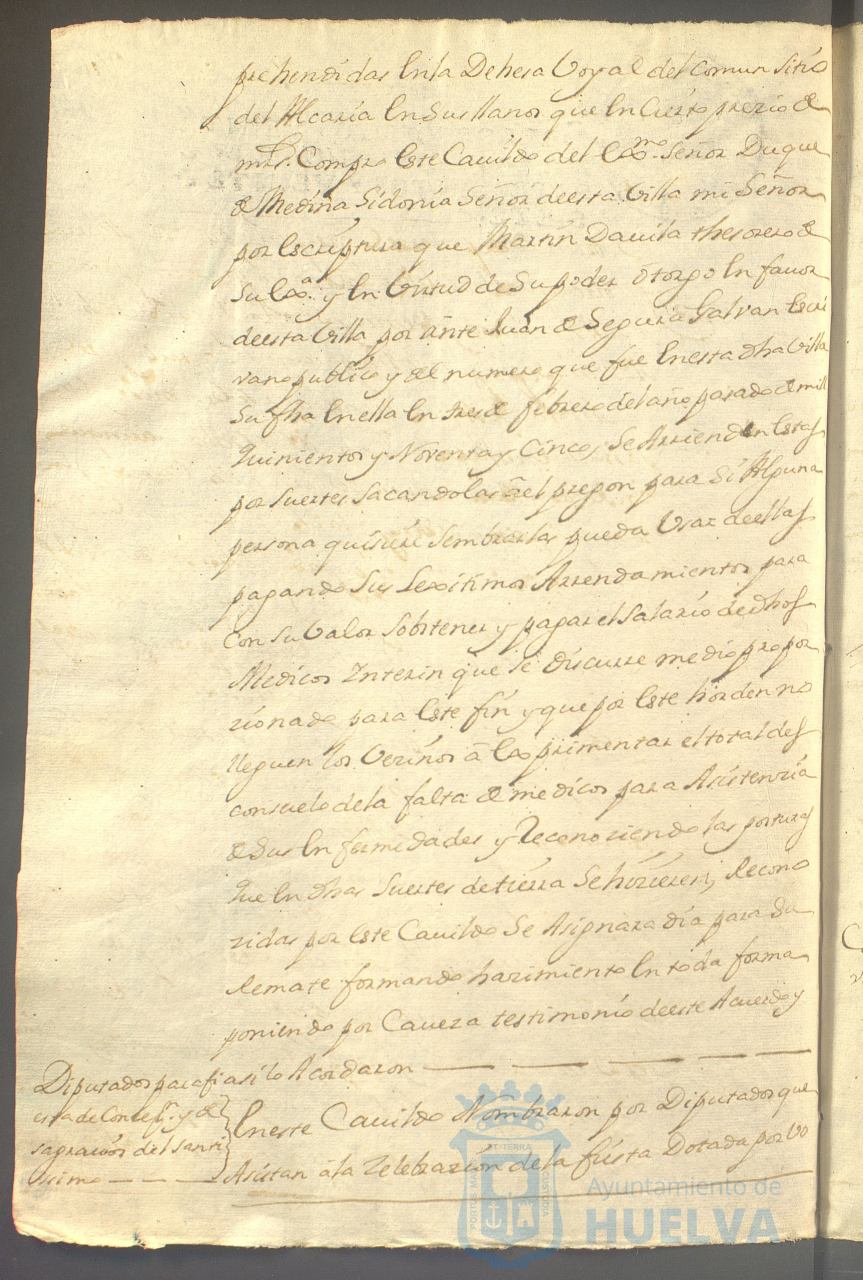 prehendidas en la Dehesa Boyal del comun sitio
del Alcaria en sus llanos que en cierto precio de
mrs. Compro este Cavildo del exmo. Señor Duque
de Medina Sidonia Señor de esta Villa mi Señor
por escriptura que Martin Davila thesorero de
su exa. y en virtud de su poder otorgo en favor
de esta Villa por ante Juan de Segura Galvan Escri
vano publico y del numero que fue en esta dha Villa
su fha en ella en tres de febrero del año pasado de mill
quinientos y Noventa y Cinco, se Arrienden estas
por suertes sacandolas al pregon para si Alguna
persona quisiere sembrarlas pueda Usar de ellas
pagando sus Lexitimos Arrendamientos para
con su Valor sobstener y pagar el salario de dhos
Medicos Interin que se discurre medio propor
zionado para este fin y que por este horden no
lleguen los Vezinos à experimentar el total des
consuelo de la falta de medicos para Asistenzia
de sus enfermedades y Reconoziendo las posturas
que en dhas suertes de tierra se hizieren, Recono
zidas por este Cavildo se Asignara dia para su
Remate formando hazimiento en toda forma
poniendo por Caveza testimonio de este Acuerdo y
asi lo Acordaron
Diputados para fi
esta de Concepn. y de
sagrarios del santi
simo
En este Cavildo Nombraron por Diputados que
Asistan à la Zelebrazion de la fiesta Dotada por Vo
Ayuntamiento de
HUELVA